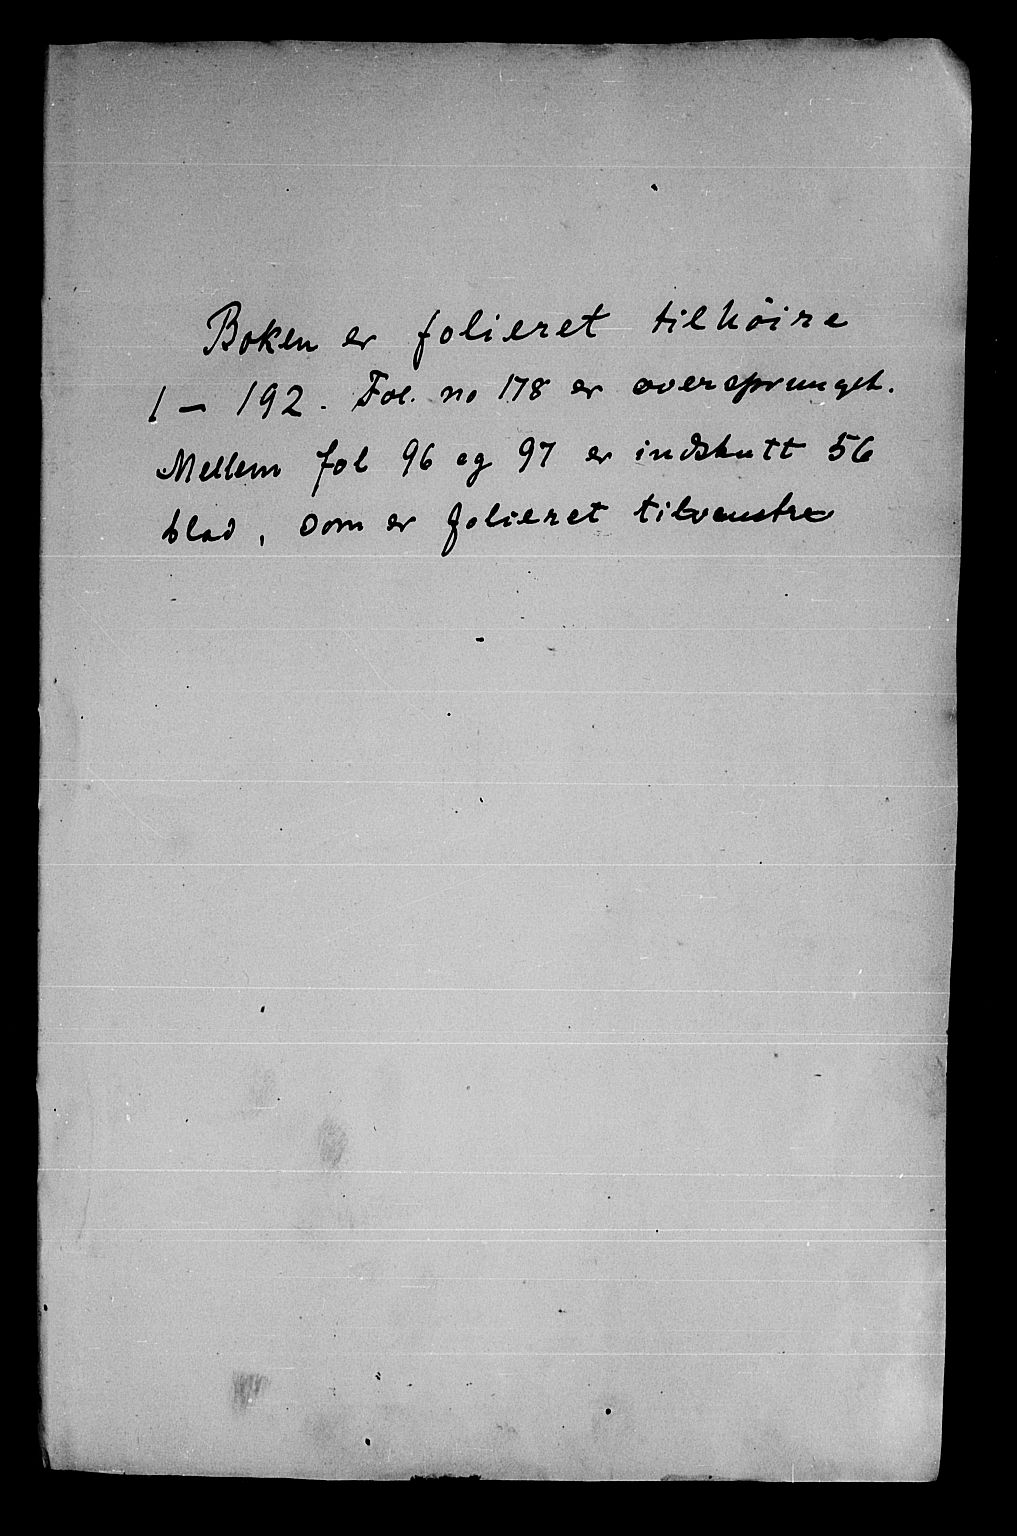 Boken er folieret tilhöire
1 - 192. Fol. no 178 er oversprunget.
Mellem fol 96 og 97 er indskutt 56
blad, som er folieret tilvenstre